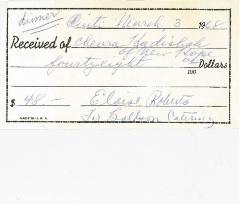 dinner
Cinti March, 3 1968
Received of Chevra Kadishah
of New Hope
fourtyeight 00/100 Dollars
$ 48 — Eloise Roberto
MADE IN U.S.A. for Ballroom Catering